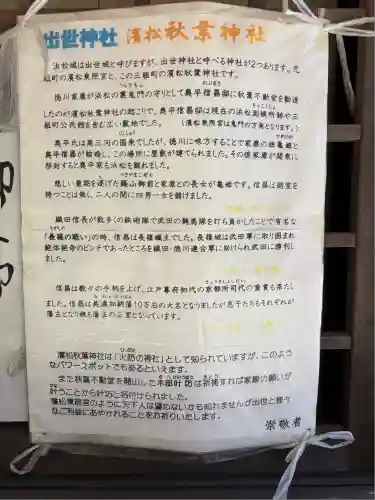 出世神社 濱松秋葉神社
浜松城は出世城と呼びますが、出世神社と呼べる神社が2つあります。元
組町の濱松東照宮と、この三組町の濱松秋葉神社です。
徳川家康が浜松の裏鬼門の守りとして奥平信昌邸に秋葉不動堂を勧進
したのが濱松秋葉神社の起こりで、奥平信昌邸は現在の浜松
組町公民館を含む広い敷地でした。(濱松東照宮は鬼門の方角となります。)
奥平氏は奥三河の国衆でしたが、徳川に帰することで家康の娘亀姫と
奥平信昌が結婚し、この場所に屋敷が建てられました。その後家康が関東に
移封すると奥平家も浜松を離れました。
悲しい最期を遂げた築山御前と家康との長女が亀姫です。信昌は側室を
持つことは無く、二人の間に四男一女を儲けました。
織田信長が数多くの鉄砲隊で武田の騎馬隊を打ち負かしたことで有名な
「長篠の戦い」の時、信昌は長篠城主でした。長篠城は武田軍に取り囲まれ
絶体絶命のピンチであったところを織田・徳川連合軍に助けられ武田に勝利し
ました。
信昌は数々の手柄を上げ、江戸幕府初代の京都所司代の重責も果たし
ました。信昌は美濃加納藩10万石の大名となりましたが息子たちもそれぞれが
藩主となり娘も藩主の正室となっています。
濱松秋葉神社は「火防の神社」として知られていますが、このよう
なパワースポットでもあるといえます。
また秋葉不動堂を開山した木部叶坊は祈祷すれば家康の願いが
叶うことから叶坊と名付けられました。
濱松東照宮のように天下人は望めないかも知れませんが出世と様々
なご利益にあやかれることをお祈りいたします。
崇敬者